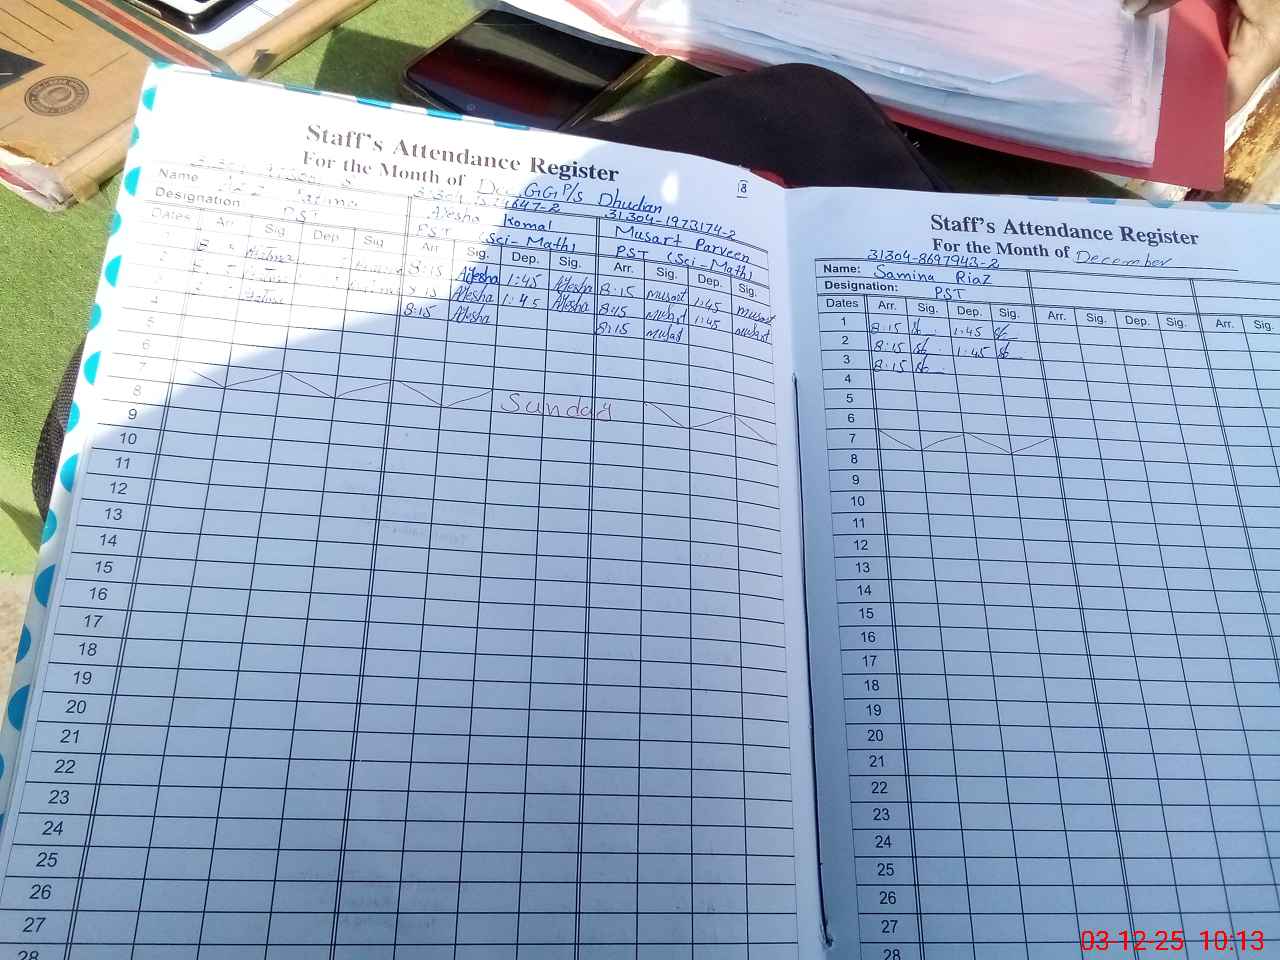 Staff's Attendance Register
For the Month of Dec, GGP/S Dhudian
8
Name
Designation PST
647-2
Ayesha Komal
PST (Sci-Math)
31304-1973174-2
Musart Parveen
PST (Sci-Math)
Dates Arr Sig Dep Sig Arr Sig. Dep. Sig. Arr. Sig. Dep. Sig.
1 8:15 Ayesha 1:45 Ayesha 8:15 Musart 1:45 Musart
2 8:15 Ayesha 1:45 Ayesha 8:15 Musart 1:45 Musart
3 8:15 Ayesha 8:15 Musart
4
5
6
7 Sunday
8
9
10
11
12
13
14
15
16
17
18
19
20
21
22
23
24
25
26
27
28
Staff's Attendance Register
For the Month of December
31304-8697943-2
Name: Samina Riaz
Designation: PST
Dates Arr. Sig. Dep. Sig. Arr. Sig. Dep. Sig. Arr. Sig.
1 8:15 1:45
2 8:15 1:45
3 8:15
4
5
6
7
8
9
10
11
12
13
14
15
16
17
18
19
20
21
22
23
24
25
26
27
28
03-12-25 10:13